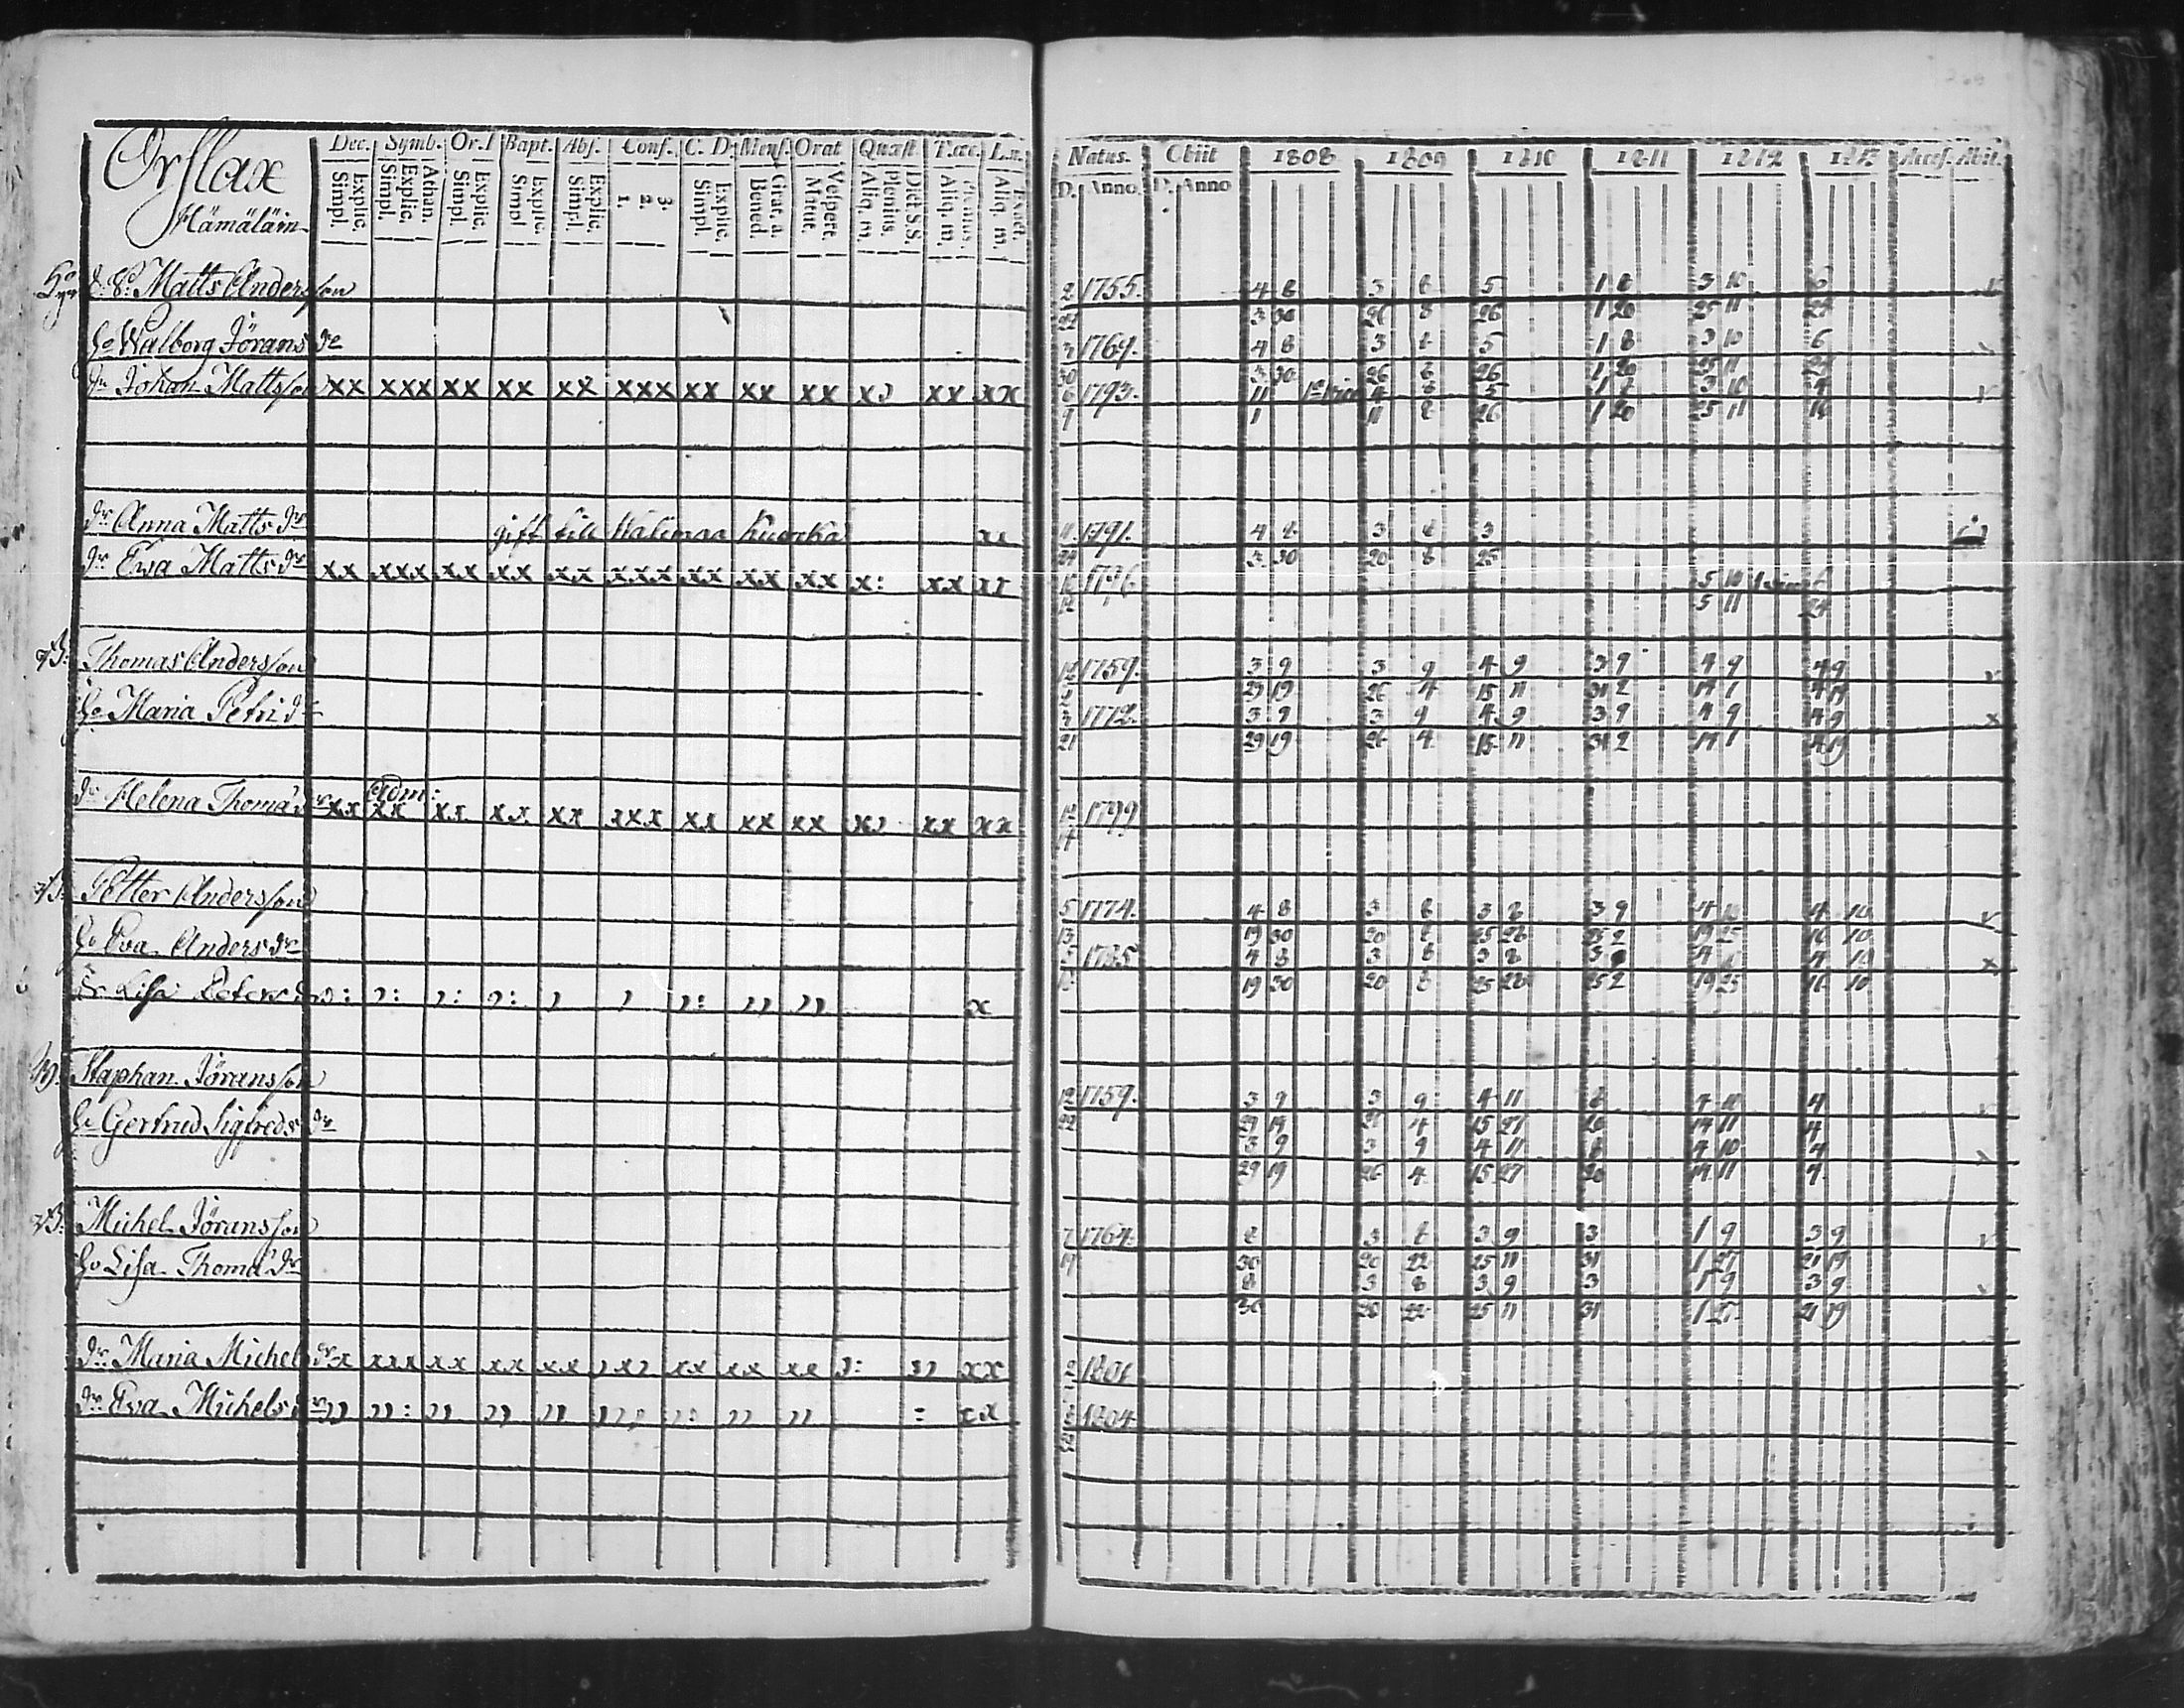 Orslax
Hämäläin
Dec. Symb. Or. D Bapt. Abs. Conf. C. D. Mens. Orat Quæst T.œc. L.n.
Explic. Simpl. Athan. Explic. Simpl. Explic. Simpl. Explic. Simpl Explic. Simpl. 3. 2. 1. Explic. Simpl Grat. a. Bened. Vespert. Matut. Dict. S.S. Plenius. Aliq. m. Plenius. Aliq. m. Exact. Aliq. m.
Natus. Obiit 1808 1809 1810 1811 1812 1813 Access. Abit.
D. Anno. D. Anno
Matts Andersson 2 1755. 4 8 3 8 5 1 8 3 10 6
22 3 30 26 8 26 1 20 25 11 25
Hu Walborg Jörans dr 3 1764. 4 8 3 8 5 1 8 3 10 6
30 3 30 26 8 26 1 20 25 11 25
dn Johan Mattsson xx xxx xx xx xx xxx xx xx xx x xx xx 6 1793. 11 4 8 5 1 8 3 10 4
9 1 11 8 26 1 20 25 11 16
dr Anna Matts dr gift till xx 11 1791. 4 8 3 8 3
24 3 30 20 8 25
dr Ewa Matts dr xx xxx xx xx xx xxx xx xx xx x: xx xx 12 1796 5 10 6
12 5 11 24
B: Thomas Andersson 12 1759. 3 9 3 9 4 9 3 9 4 9 4 9
29 19 26 4 15 11 31 2 14 1 4 19
Hu Maria Petri dr 3 1772. 3 9 3 9 4 9 3 9 4 9 4 9
21 29 19 26 4 15 11 31 2 14 1 4 19
Adm:
dr Helena Thomæ dr xx xx xx xx xx xxx xx xx xx x xx xx 12 1799
B: Petter Andersson 5 1774. 4 8 3 8 3 8 3 9 4 4 10
13 19 30 20 8 25 28 25 2 19 25 16 10
Hu Eva Anders dr 5 1785 4 8 3 8 3 8 3 4 4 10
19 30 20 8 25 28 25 2 19 25 16 10
Dr Lisa Peters dr x
Staphan Jöransson 12 1759. 3 9 3 9 4 11 8 4 10 4
22 29 19 26 4 15 27 20 14 11 4
Hu Gertrud Sigfreds dr 3 9 3 9 4 11 8 4 10 4
29 19 26 4 15 27 20 14 11 4
B: Michel Jöransson 7 1764. 8 3 8 3 9 3 1 9 3 9
19 30 20 22 25 11 31 1 27 21 19
Hu Lisa Thomæ dr 8 3 8 3 9 3 1 9 3 9
30 20 22 25 11 31 1 27 21 19
dr Maria Michels dr x xxx xx xx xx xx xx xx xx 2 1801
dr Ewa Michels dr xx 1804